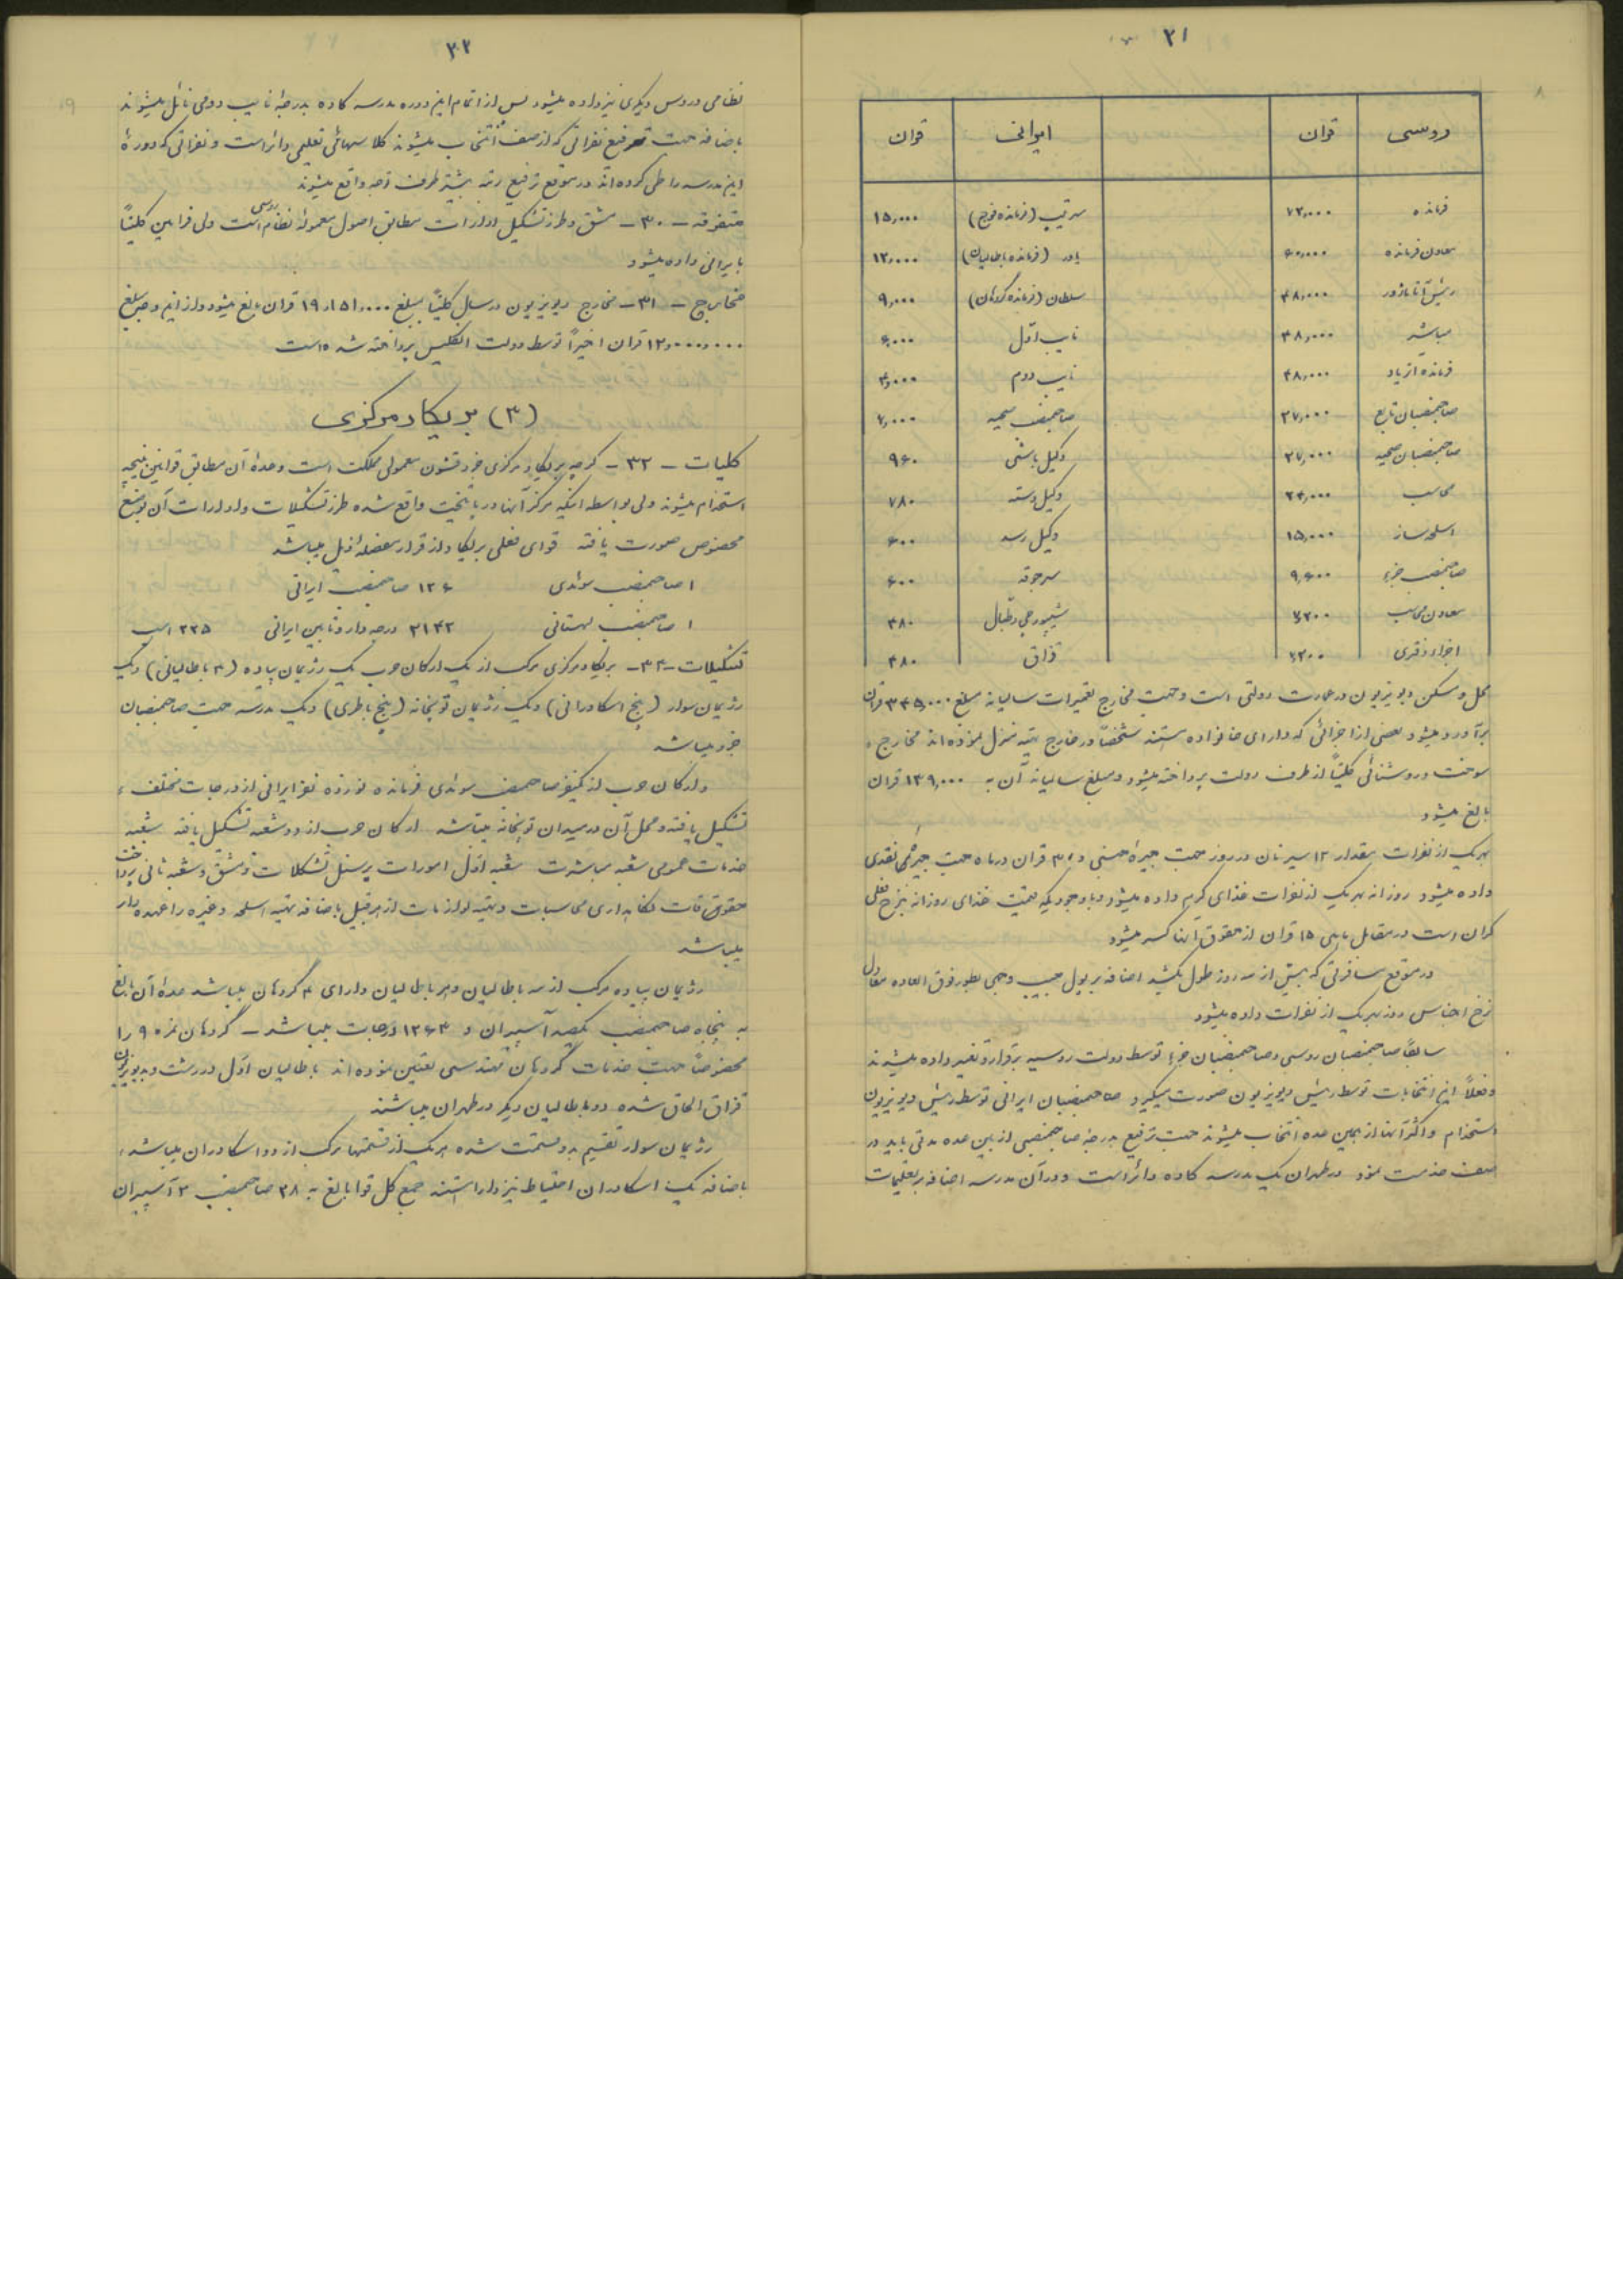 ۲۱
روسی قران ایرانی قران
فرمانده ۷۲,۰۰۰ سرتیپ (فرمانده فوج) ۱۵,۰۰۰
معاون فرمانده ۶۰,۰۰۰ یاور (فرمانده باطالیان) ۱۲,۰۰۰
رئیس اتاماژور ۴۸,۰۰۰ سلطان (فرمانده گروهان) ۹,۰۰۰
مباشر ۴۸,۰۰۰ نایب اول ۶,۰۰۰
فرمانده اتریاد ۴۸,۰۰۰ نایب دوم
صاحبمنصبان تابع ۲۷,۰۰۰ صاحبمنصب صحیه
صاحبمنصبان صحیه ۲۷,۰۰۰ وکیل باشی ۹۶۰
محاسب ۲۴,۰۰۰ وکیل دسته ۷۸۰
اسلحه ساز ۱۵,۰۰۰ وکیل رسد ۶۰۰
صاحبمنصب جزء ۹,۶۰۰ سرجوقه ۶۰۰
معاون محاسب ۷۲۰۰ شیپورچی و طبال ۴۸۰
اجزاء دفتری ۷۲۰۰ قزاق ۴۸۰
محل و مسکن دیویزیون در عمارت دولتی است و جهت مخارج تعمیرات سالیانه مبلغ ۳۴۵,۰۰۰ قران
برآورد میشود بعضی از اجزائی که دارای خانواده هستند شخصاً در خارج تهیه منزل نموده اند مخارج
سوخت و روشنائی کلیتاً از طرف دولت پرداخته میشود و مبلغ سالیانه آن به ۱۳۹,۰۰۰ قران
بالغ میشود
بهر یک از نفرات بمقدار ۱۲ سیر نان در روز جهت جیره جنسی و ۳۰ قران در ماه جهت جیره نقدی
داده میشود روزانه بهر یک از نفرات غذای گرم داده میشود و با وجودیکه قیمت غذای روزانه بنرخ فعلی
گران است در مقابل ماهی ۱۵ قران از حقوق آنها کسر میشود
در موقع مسافرتی که بیش از سه روز طول بکشد اضافه بر پول جیب وجهی بطور فوق العاده معادل
نرخ اجناس روز بهر یک از نفرات داده میشود
سابقاً صاحبمنصبان روسی و صاحبمنصبان جزء توسط دولت روسیه برقرار و تغییر داده میشدند
و فعلاً این انتخابات توسط رئیس دیویزیون صورت میگیرد صاحبمنصبان ایرانی توسط رئیس دیویزیون
استخدام و اکثر آنها از همین عده انتخاب میشوند جهت ترفیع بدرجه صاحبمنصبی از بین عده مدتی باید در
صف خدمت نمود در طهران یک مدرسه کاده دائر است و در آن مدرسه اضافه بر تعلیمات
۲۲
نظامی دروس دیگری نیز داده میشود پس از اتمام این دوره مدرسه کاده بدرجه نایب دومی نائل میشوند
باضافه جهت ترفیع نفراتی که از صف انتخاب میشوند کلاسهای تعلیمی دائر است و نفراتی که دورهٔ
این مدرسه را طی کرده اند در موقع ترفیع رتبه بیشتر طرف توجه واقع میشوند
متفرقه – ۳۰ – مشق و طرز تشکیل ادارات مطابق اصول معموله نظام روسی است ولی فرامین کلیتاً
بایرانی داده میشود
مخارج – ۳۱ – مخارج دیویزیون در سال کلیتاً بمبلغ ۱۹,۱۵۱,۰۰۰ قران بالغ میشود و از این وجه مبلغ
۱۲,۰۰۰,۰۰۰ قران اخیراً توسط دولت انگلیس پرداخته شده است
(۳) بریگاد مرکزی
کلیات – ۳۲ – گرچه بریگاد مرکزی جزء قشون معمولی مملکت است و عدهٔ آن مطابق قوانین بنیچه
استخدام میشوند ولی بواسطه اینکه مرکز آنها در پایتخت واقع شده طرز تشکیلات و ادارات آن بوضع
مخصوص صورت یافته قوای فعلی بریگاد از قرار مفصله ذیل میباشد
۱ صاحبمنصب سوئدی ۱۲۶ صاحبمنصب ایرانی
۱ صاحبمنصب لهستانی ۲۱۴۲ درجه دار و تابین ایرانی ۲۲۵ اسب
تشکیلات – ۳۳ – بریگاد مرکزی مرکب از یک ارکان حرب یک رژیمان پیاده (۳ باطالیانی) و یک
رژیمان سوار (پنج اسکادرانی) و یک رژیمان توپخانه (پنج باطری) و یک مدرسه جهت صاحبمنصبان
جزء میباشد
ارکان حرب از یکنفر صاحبمنصب سوئدی فرمانده نوزده نفر ایرانی از درجات مختلف
تشکیل یافته و محل آن در میدان توپخانه میباشد ارکان حرب از دو شعبه تشکیل یافته شعبه
خدمات عمومی شعبه مباشرت شعبه اول امورات پرسنل تشکیلات و مشق و شعبه ثانی پرداخت
حقوقات نگاهداری محاسبات و تهیه لوازمات از هر قبیل باضافه تهیه اسلحه و غیره را عهده دار
میباشد
رژیمان پیاده مرکب از سه باطالیان و هر باطالیان دارای ۴ گروهان میباشد عدهٔ آن بالغ
به پنجاه صاحبمنصب یکصد آسپیران و ۱۲۶۳ درجات میباشد – گروهان نمره ۹ را
مخصوصاً جهت خدمات گروهان مهندسی تعیین نموده اند باطالیان اول در رشت و بدیویزیون
قزاق الحاق شده دو باطالیان دیگر در طهران میباشند
رژیمان سوار تقسیم بدو قسمت شده هر یک از قسمتها مرکب از دو اسکادران میباشد
باضافه یک اسکادران احتیاط نیز دارا هستند جمع کل قوا بالغ به ۳۸ صاحبمنصب ۳ آسپیران